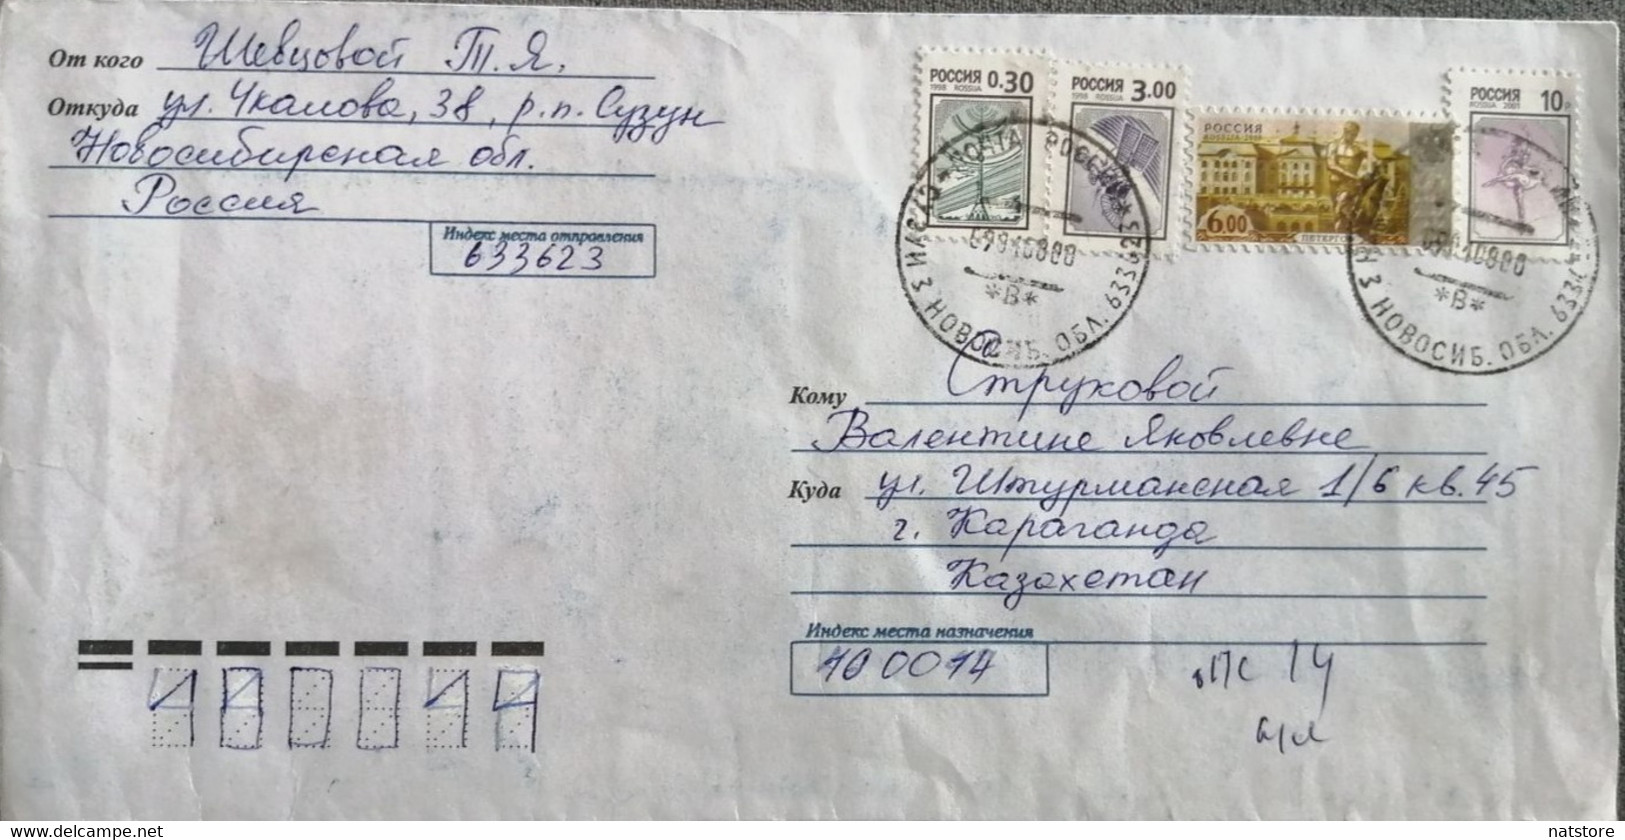 От кого Шевцовой Т.Я.
Откуда ул. Чкалова, 38, р.п. Сузун
Новосибирская обл.
Россия
Индекс места отправления
633623
РОССИЯ 0.30
1998 ROSSIJA
РОССИЯ 3.00
1998 ROSSIJA
РОССИЯ
6.00
РОССИЯ 10 р
ROSSIJA 2001
ПОЧТА РОССИИ
*В*
НОВОСИБ. ОБЛ. 633623
*В*
НОВОСИБ. ОБЛ.
Кому Струковой
Валентине Яковлевне
Куда ул. Штурманская 1/6 кв. 45
г. Караганда
Казахстан
Индекс места назначения
100014
www.delcampe.net
natstore